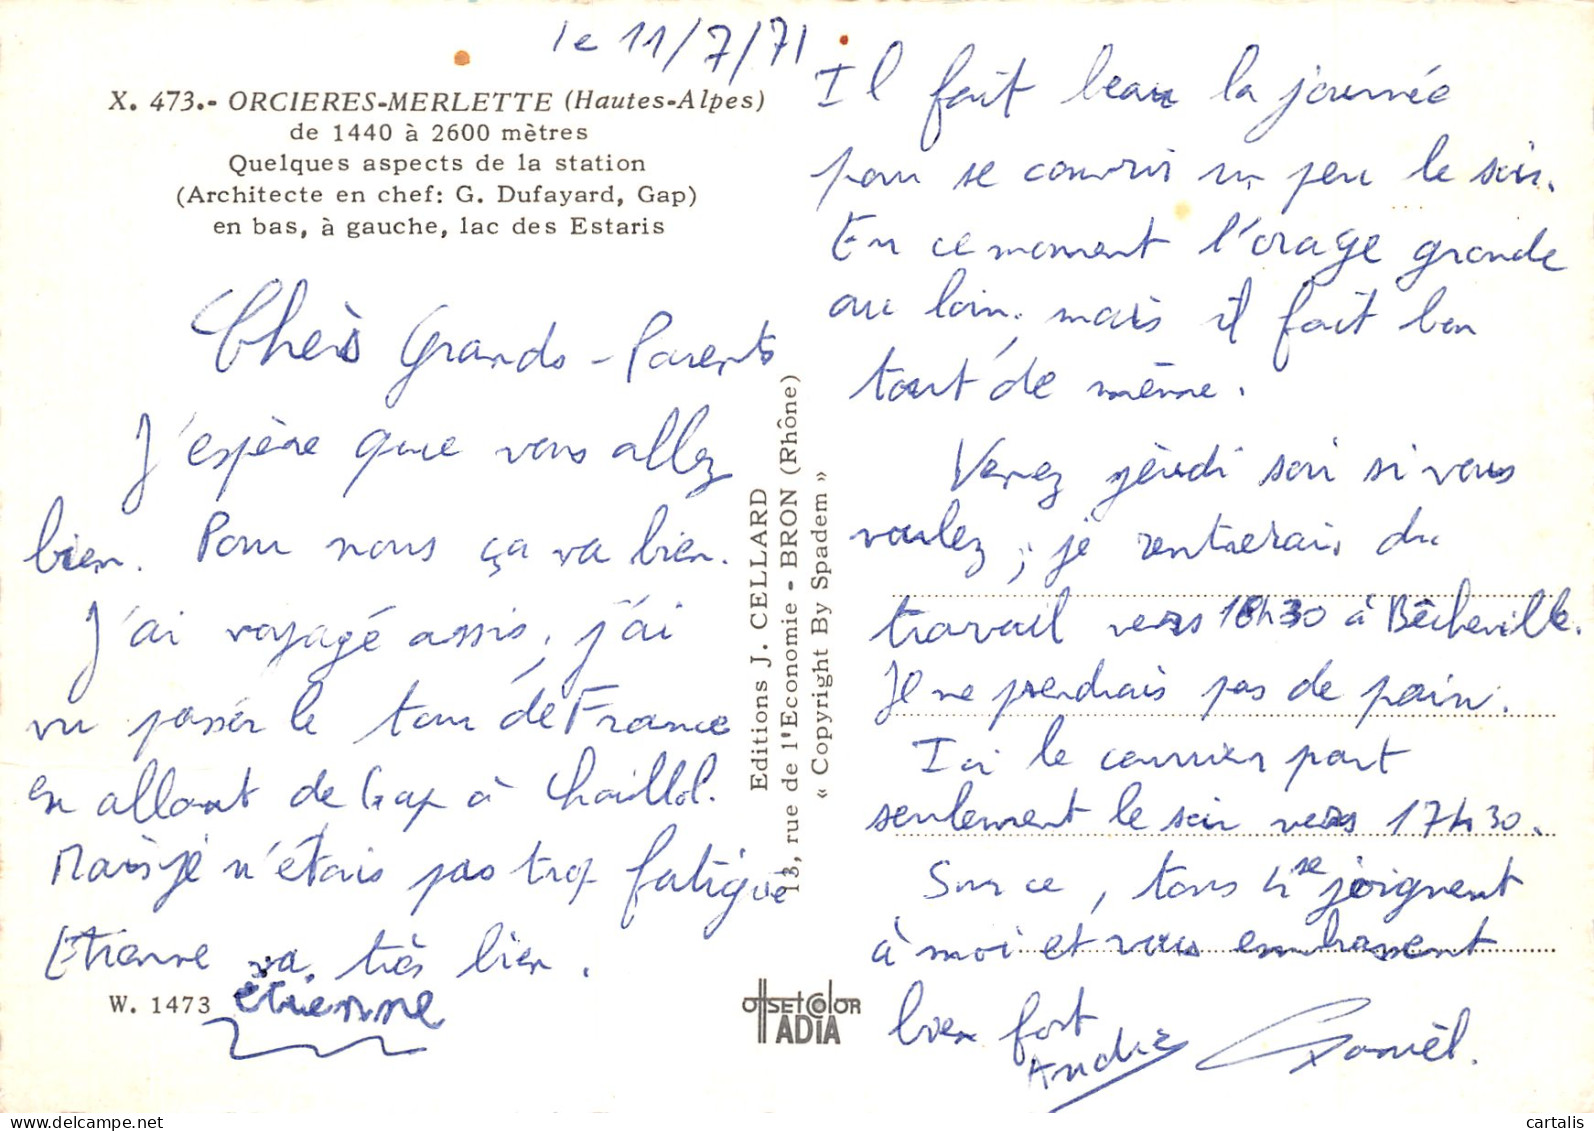 le 11/7/71
X. 473.- ORCIERES-MERLETTE (Hautes-Alpes)
de 1440 à 2600 mètres
Quelques aspects de la station
(Architecte en chef: G. Dufayard, Gap)
en bas, à gauche, lac des Estaris
Chers Grands-Parents
J'espère que vous allez
bien. Pour nous ça va bien.
J'ai voyagé assis, j'ai
vu passer le tour de France
en allant de Gap à Chaillol.
Mais je n'étais pas trop fatigué
Etienne va très bien.
W. 1473
étienne
Editions J. CELLARD
13, rue de l'Economie - BRON (Rhône)
« Copyright By Spadem »
OFFSET COLOR
ADIA
Il fait beau la journée
pour se couvrir un peu le soir.
En ce moment l'orage gronde
au loin, mais il fait bon
tout de même.
Venez jeudi soir si vous
voulez, je rentrerais du
travail vers 18h30 à Bêcheville.
Je ne prendrais pas de pain.
Ici le courrier part
seulement le soir vers 17h30.
Sur ce, tous se joignent
à moi et vous embrassent
bien fort
André
Daniel.
cartalis
delcampe.net